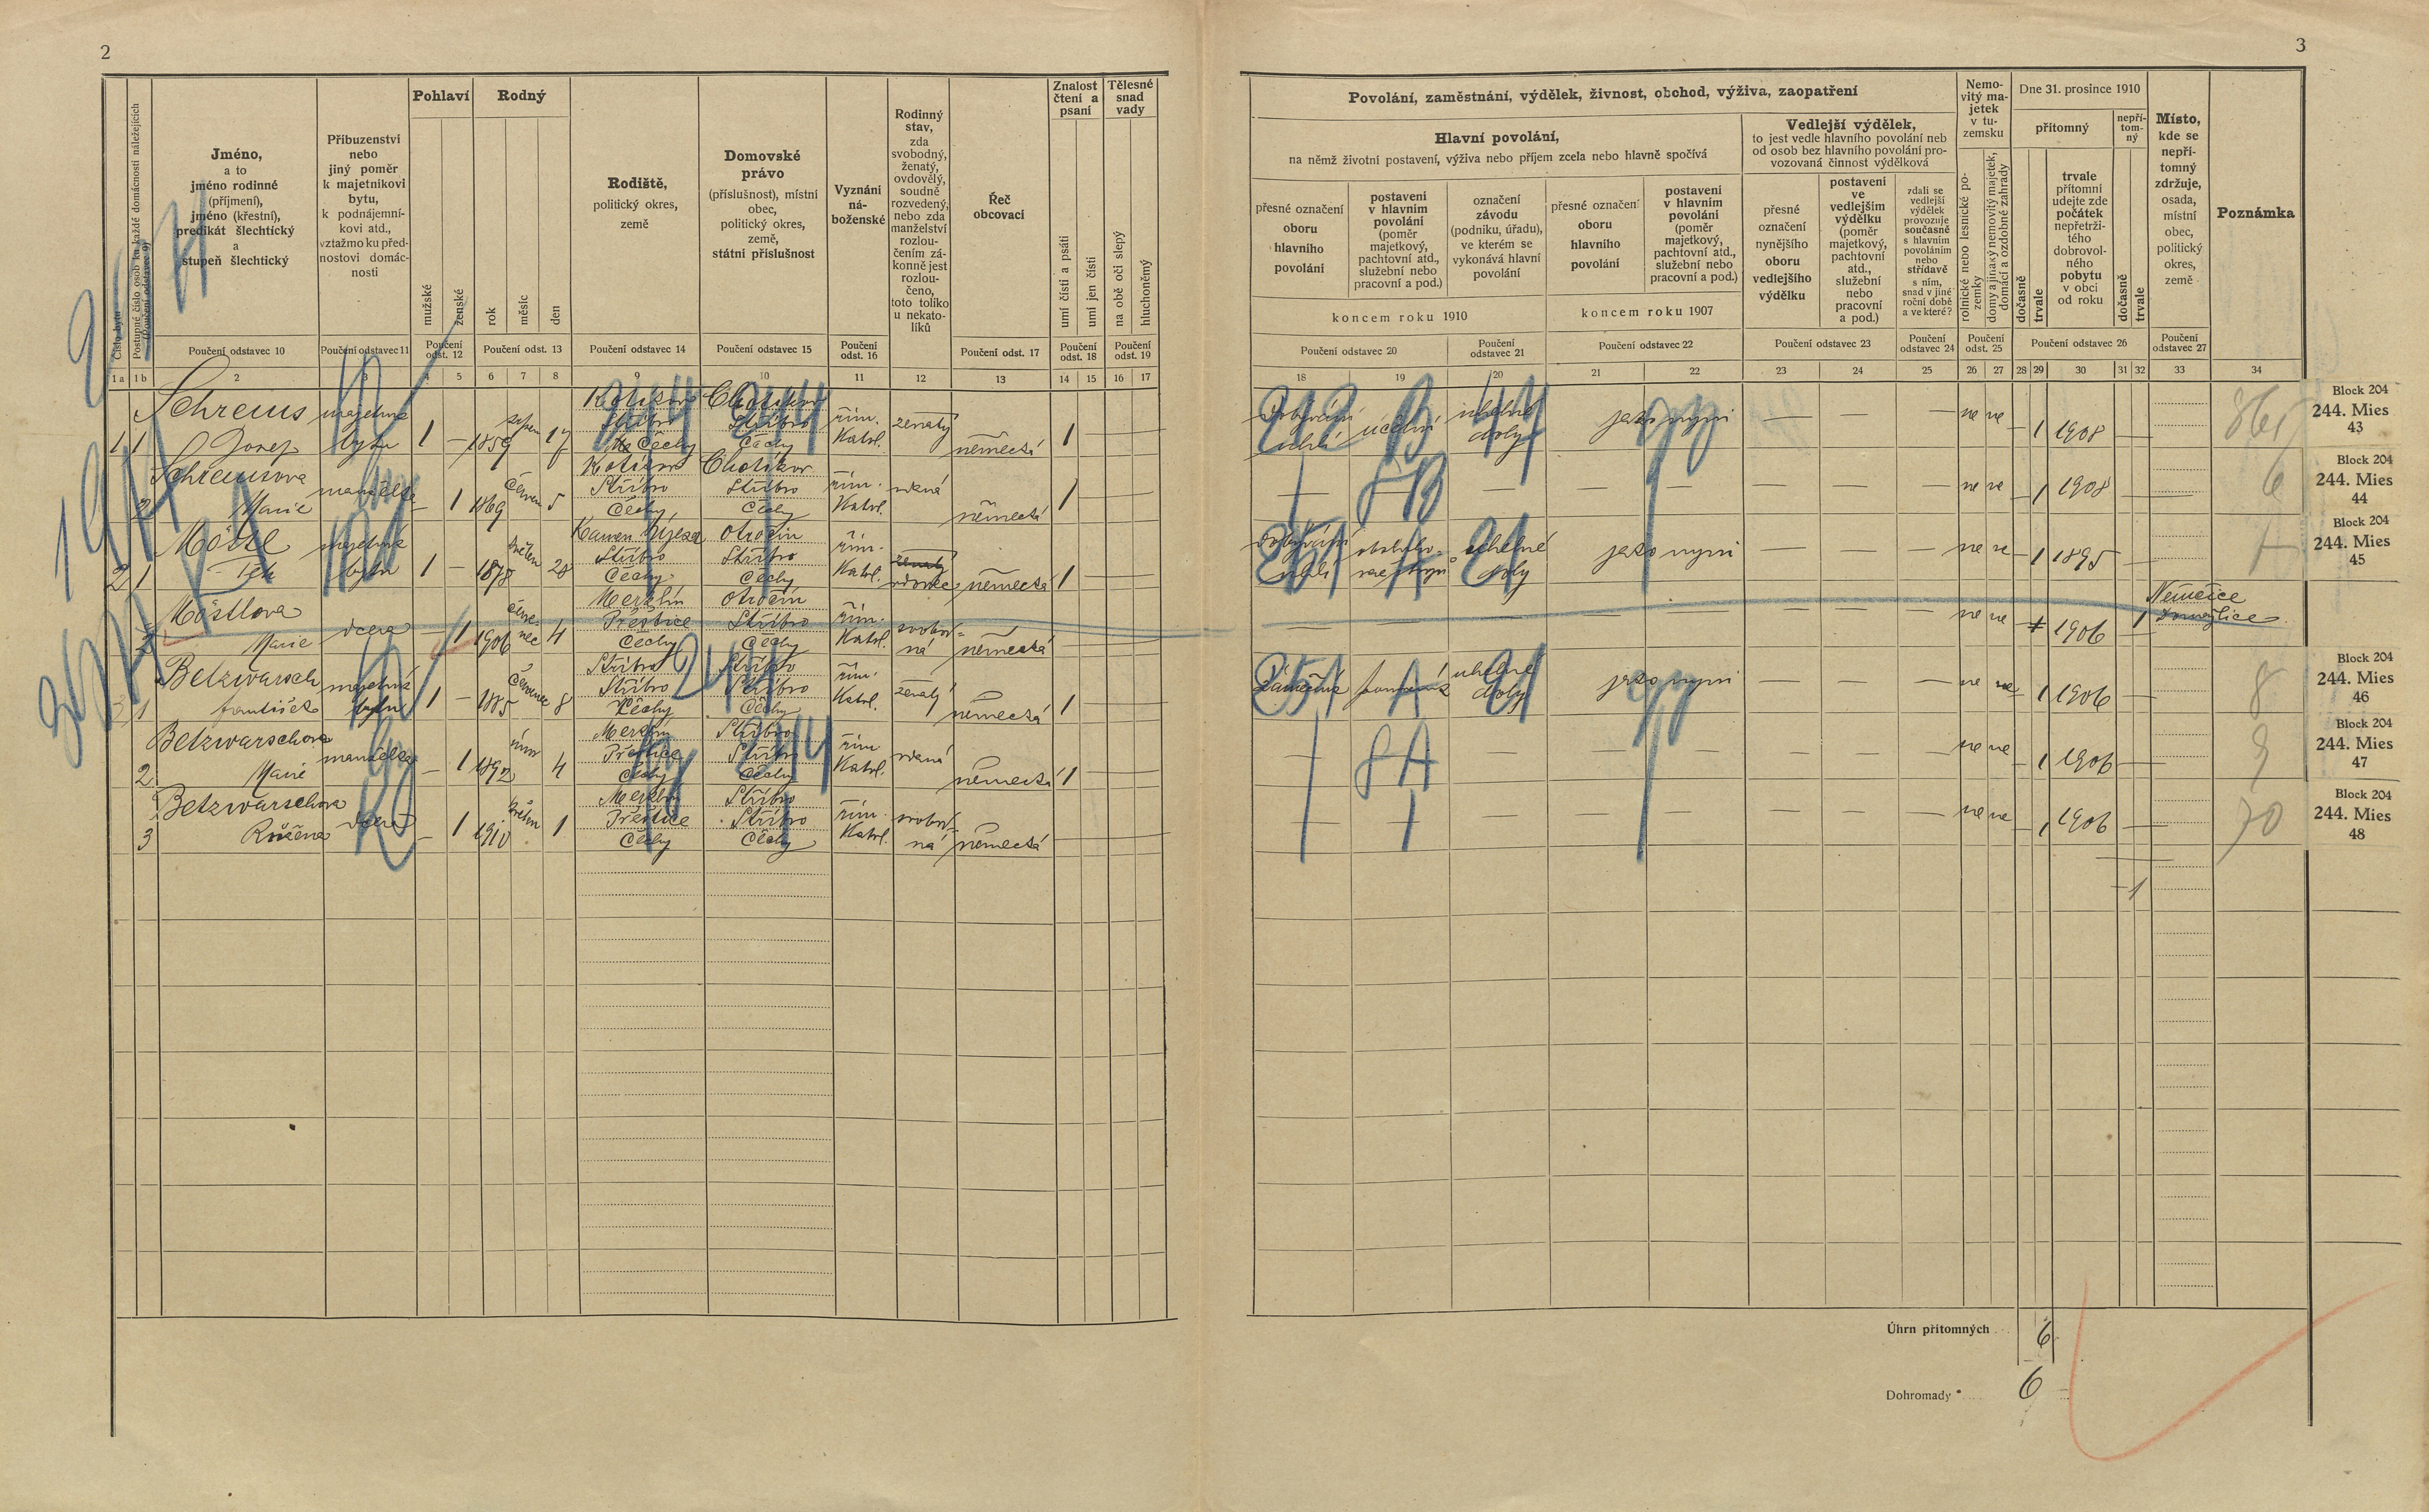 2
3
Číslo bytu
Postupné číslo osob ku každé domácnosti náležejících
(Poučení odstavec 9)
Jméno,
a to
jméno rodinné
(příjmení),
jméno (křestní),
predikát šlechtický
a
stupeň šlechtický
Příbuzenství
nebo
jiný poměr
k majetníkovi
bytu,
k podnájemní-
kovi atd.,
vztažmo ku před-
nostovi domác-
nosti
Pohlaví
mužské
ženské
Rodný
rok
měsíc
den
Rodiště,
politický okres,
země
Domovské
právo
(příslušnost), místní
obec,
politický okres,
země,
státní příslušnost
Vyznání
ná-
boženské
Rodinný
stav,
zda
svobodný,
ženatý,
ovdovělý,
soudně
rozvedený,
nebo zda
manželství
rozlou-
čením zá-
konně jest
rozlou-
čeno,
toto toliko
u nekato-
líků
Řeč
obcovací
Znalost
čtení a
psaní
umí čísti a psáti
umí jen čísti
Tělesné
snad
vady
na obě oči slepý
hluchoněmý
Poučení odstavec 10
Poučení odstavec 11
Poučení odst. 12
Poučení odst. 13
Poučení odstavec 14
Poučení odstavec 15
Poučení odst. 16
Poučení odst. 17
Poučení odst. 18
Poučení odst. 19
1a 1b 2 3 4 5 6 7 8 9 10 11 12 13 14 15 16 17
Povolání, zaměstnání, výdělek, živnost, obchod, výživa, zaopatření
Hlavní povolání,
na němž životní postavení, výživa nebo příjem zcela nebo hlavně spočívá
přesné označení
oboru
hlavního
povolání
postavení
v hlavním
povolání
(poměr
majetkový,
pachtovní atd.,
služební nebo
pracovní a pod.)
označení
závodu
(podniku, úřadu),
ve kterém se
vykonává hlavní
povolání
koncem roku 1910
přesné označení
oboru
hlavního
povolání
postavení
v hlavním
povolání
(poměr
majetkový,
pachtovní atd.,
služební nebo
pracovní a pod.)
koncem roku 1907
Vedlejší výdělek,
to jest vedle hlavního povolání neb
od osob bez hlavního povolání pro-
vozovaná činnost výdělková
přesné
označení
nynějšího
oboru
vedlejšího
výdělku
postavení
ve
vedlejším
výdělku
(poměr
majetkový,
pachtovní
atd.,
služební
nebo
pracovní
a pod.)
zdali se
vedlejší
výdělek
provozuje
současně
s hlavním
povoláním
nebo
střídavě
s ním,
snad v jiné
roční době
a ve které?
Nemo-
vitý ma-
jetek
v tu-
zemsku
rolnické nebo lesnické po-
zemky
domy a jinaký nemovitý majetek,
domácí a ozdobné zahrady
Dne 31. prosince 1910
přítomný
nepří-
tom-
ný
dočasně
trvale
trvale
přítomní
udejte zde
počátek
nepřetrži-
tého
dobrovol-
ného
pobytu
v obci
od roku
dočasně
trvale
Místo,
kde se
nepří-
tomný
zdržuje,
osada,
místní
obec,
politický
okres,
země
Poznámka
Poučení odstavec 20
Poučení odstavec 21
Poučení odstavec 22
Poučení odstavec 23
Poučení odstavec 24
Poučení odst. 25
Poučení odstavec 26
Poučení odstavec 27
18 19 20 21 22 23 24 25 26 27 28 29 30 31 32 33 34
Schreius majetník Kotikov Chotíkov
Stříbro Stříbro řím. ženatý
1 1 Josef bytu 1 — 1859 srpen 17 Čechy Čechy Katol. německá 1
uhelné
uhlí doly jako nyní — — — ne ne 1 1908
Block 204
244. Mies
43
Schreiusova manželka Kotikov Chotíkov
Stříbro Stříbro řím. vdaná
2 Marie — 1 1869 červen 5 Čechy Čechy Katol. německá 1
— — — — — — — ne ne — 1 1908 6
Block 204
244. Mies
44
majetník Kamen Újezd Otročin
Stříbro Stříbro řím. ženatý
2 1 bytu 1 — 1878 květen 28 Čechy Čechy Katol. vdovec německá 1
uhelné
uhlí doly jako nyní — — — ne ne — 1 1895 7
Block 204
244. Mies
45
Möstlova Merklín Otročin
dcera Přeštice Stříbro řím. svobod-
2 Marie — 1 1906 červe-nec 4 Čechy Čechy Katol. ná německá
— — — — — ne ne 1906 1 Němčice
Domažlice
Betzwarsch majetník Stříbro Stříbro
Stříbro Stříbro řím. ženatý
3 1 František bytu 1 — 1885 červenec 8 Čechy Čechy Katol. německá 1
uhelné
doly jako nyní — — — ne ne 1 1906 8
Block 204
244. Mies
46
Betzwarschova Merklín Stříbro
manželka Přeštice Stříbro řím. vdaná
2 Marie — 1 1892 únor 4 Čechy Čechy Katol. německá 1
— — — — — — ne ne — 1 1906 9
Block 204
244. Mies
47
Betzwarschova Merklín Stříbro
dcera Přeštice Stříbro řím. svobod-
3 Růžena — 1 1910 květen 1 Čechy Čechy Katol. ná německá
— — — — — — ne ne — 1 1906 70
Block 204
244. Mies
48
— 1
Úhrn přítomných 6
Dohromady 6